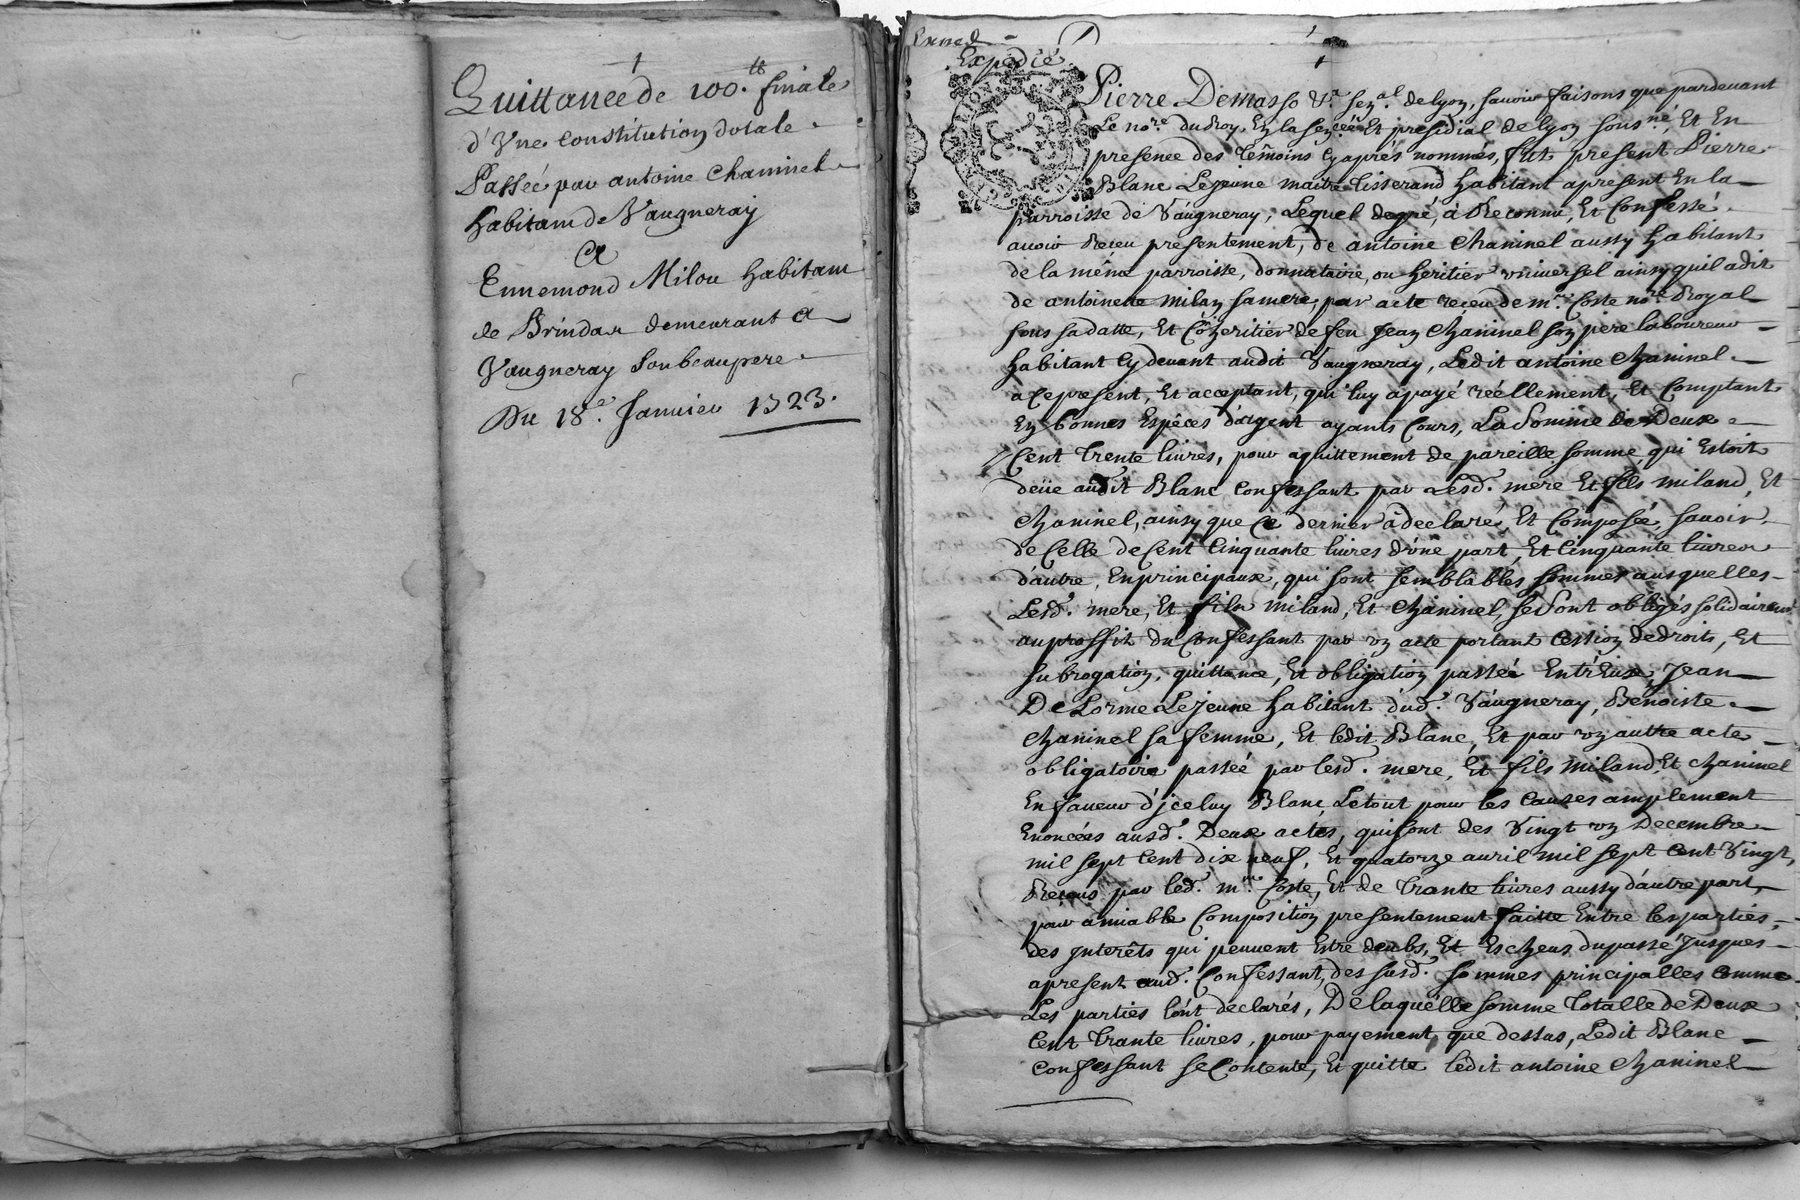 Quittance de 100.ᵗᵗ finale
d'Vne constitution dotale
Passée par antoine chaninel
habitant de Vaugneray
A
Ennemond Milou habitant
de Brindas demeurant a
Vaugneray son beaupere
Du 18.e Januier 1723.
Expedié
Pierre Demasso sen.al delyon, sauoir faisons que pardeuant
Le no.re du Roy En la sen.cée Et presidial de lyon sous.né, Et En
presence des temoins cyaprés nommés, fut present Pierre
Blanc Lejeune maitre tisserand habitant apresent En la
parroisse de Vaugneray, Lequel degré, à Reconnu, Et Confessé
auoir Receu presentement, de antoine chaninel aussy habitant
de la méme parroisse, donnataire, ou heritier vniuersel ainsy quil adit
de antoinette milan samere, par acte receu de m.re Coste no.re Royal
sous sadatte, Et Coheritier de feu Jean chaninel son pere laboureur
habitant Cy deuant audit Vaugneray, Ledit antoine chaninel
a Cepresent, Et acceptant, qui luy apayé réellement, Et Comptant
En bonnes Espéces d'argent ayants Cours, La Somme de Deux
Cent trente liures, pour aquittement de pareille somme, qui Estoit
deüe audit Blanc confessant par Lesd. mere Et fils miland, Et
chaninel, ainsy que Ce dernier à declaré, Et Composée, sauoir
de Celle de Cent Cinquante liures d'vne part, Et Cinquante liures
d'autre, Enprincipaux, qui sont semblables sommes ausquelles
Lesd. mere, Et fils miland, Et chaninel, se sont obligés solidairem.t
auproffit du Confessant par vn acte portant cession dedroits, Et
subrogation, quittance, Et obligation passée Entr'Eux, Jean
DeLorme Lejeune habitant dud. Vaugneray, Benoiste
chaninel sa femme, Et ledit Blanc, Et par vn autre acte
obligatoire passeé par lesd. mere, Et fils miland, Et chaninel
En faueur d'jceluy Blanc Letout pour les Causes amplement
Enoncées ausd. Deux actes, quisont des Vingt vn Decembre
mil sept Cent dix neuf, Et quatorze auril mil sept Cent Vingt,
Receus par led. m.re Coste, Et de trante liures aussy d'autre part,
par amiable Composition presentement faitte Entre lesparties,
des jnterêts qui peuuent Estre deubs, Et Escheus dupassé jusques
apresent aud. Confessant, des susd. sommes principalles comme
Les parties l'ont déclarés, De laquélle somme totalle de Deux
Cent trante liures, pour payement que dessus, Ledit Blanc
confessant se Contente, Et quitte ledit antoine chaninel